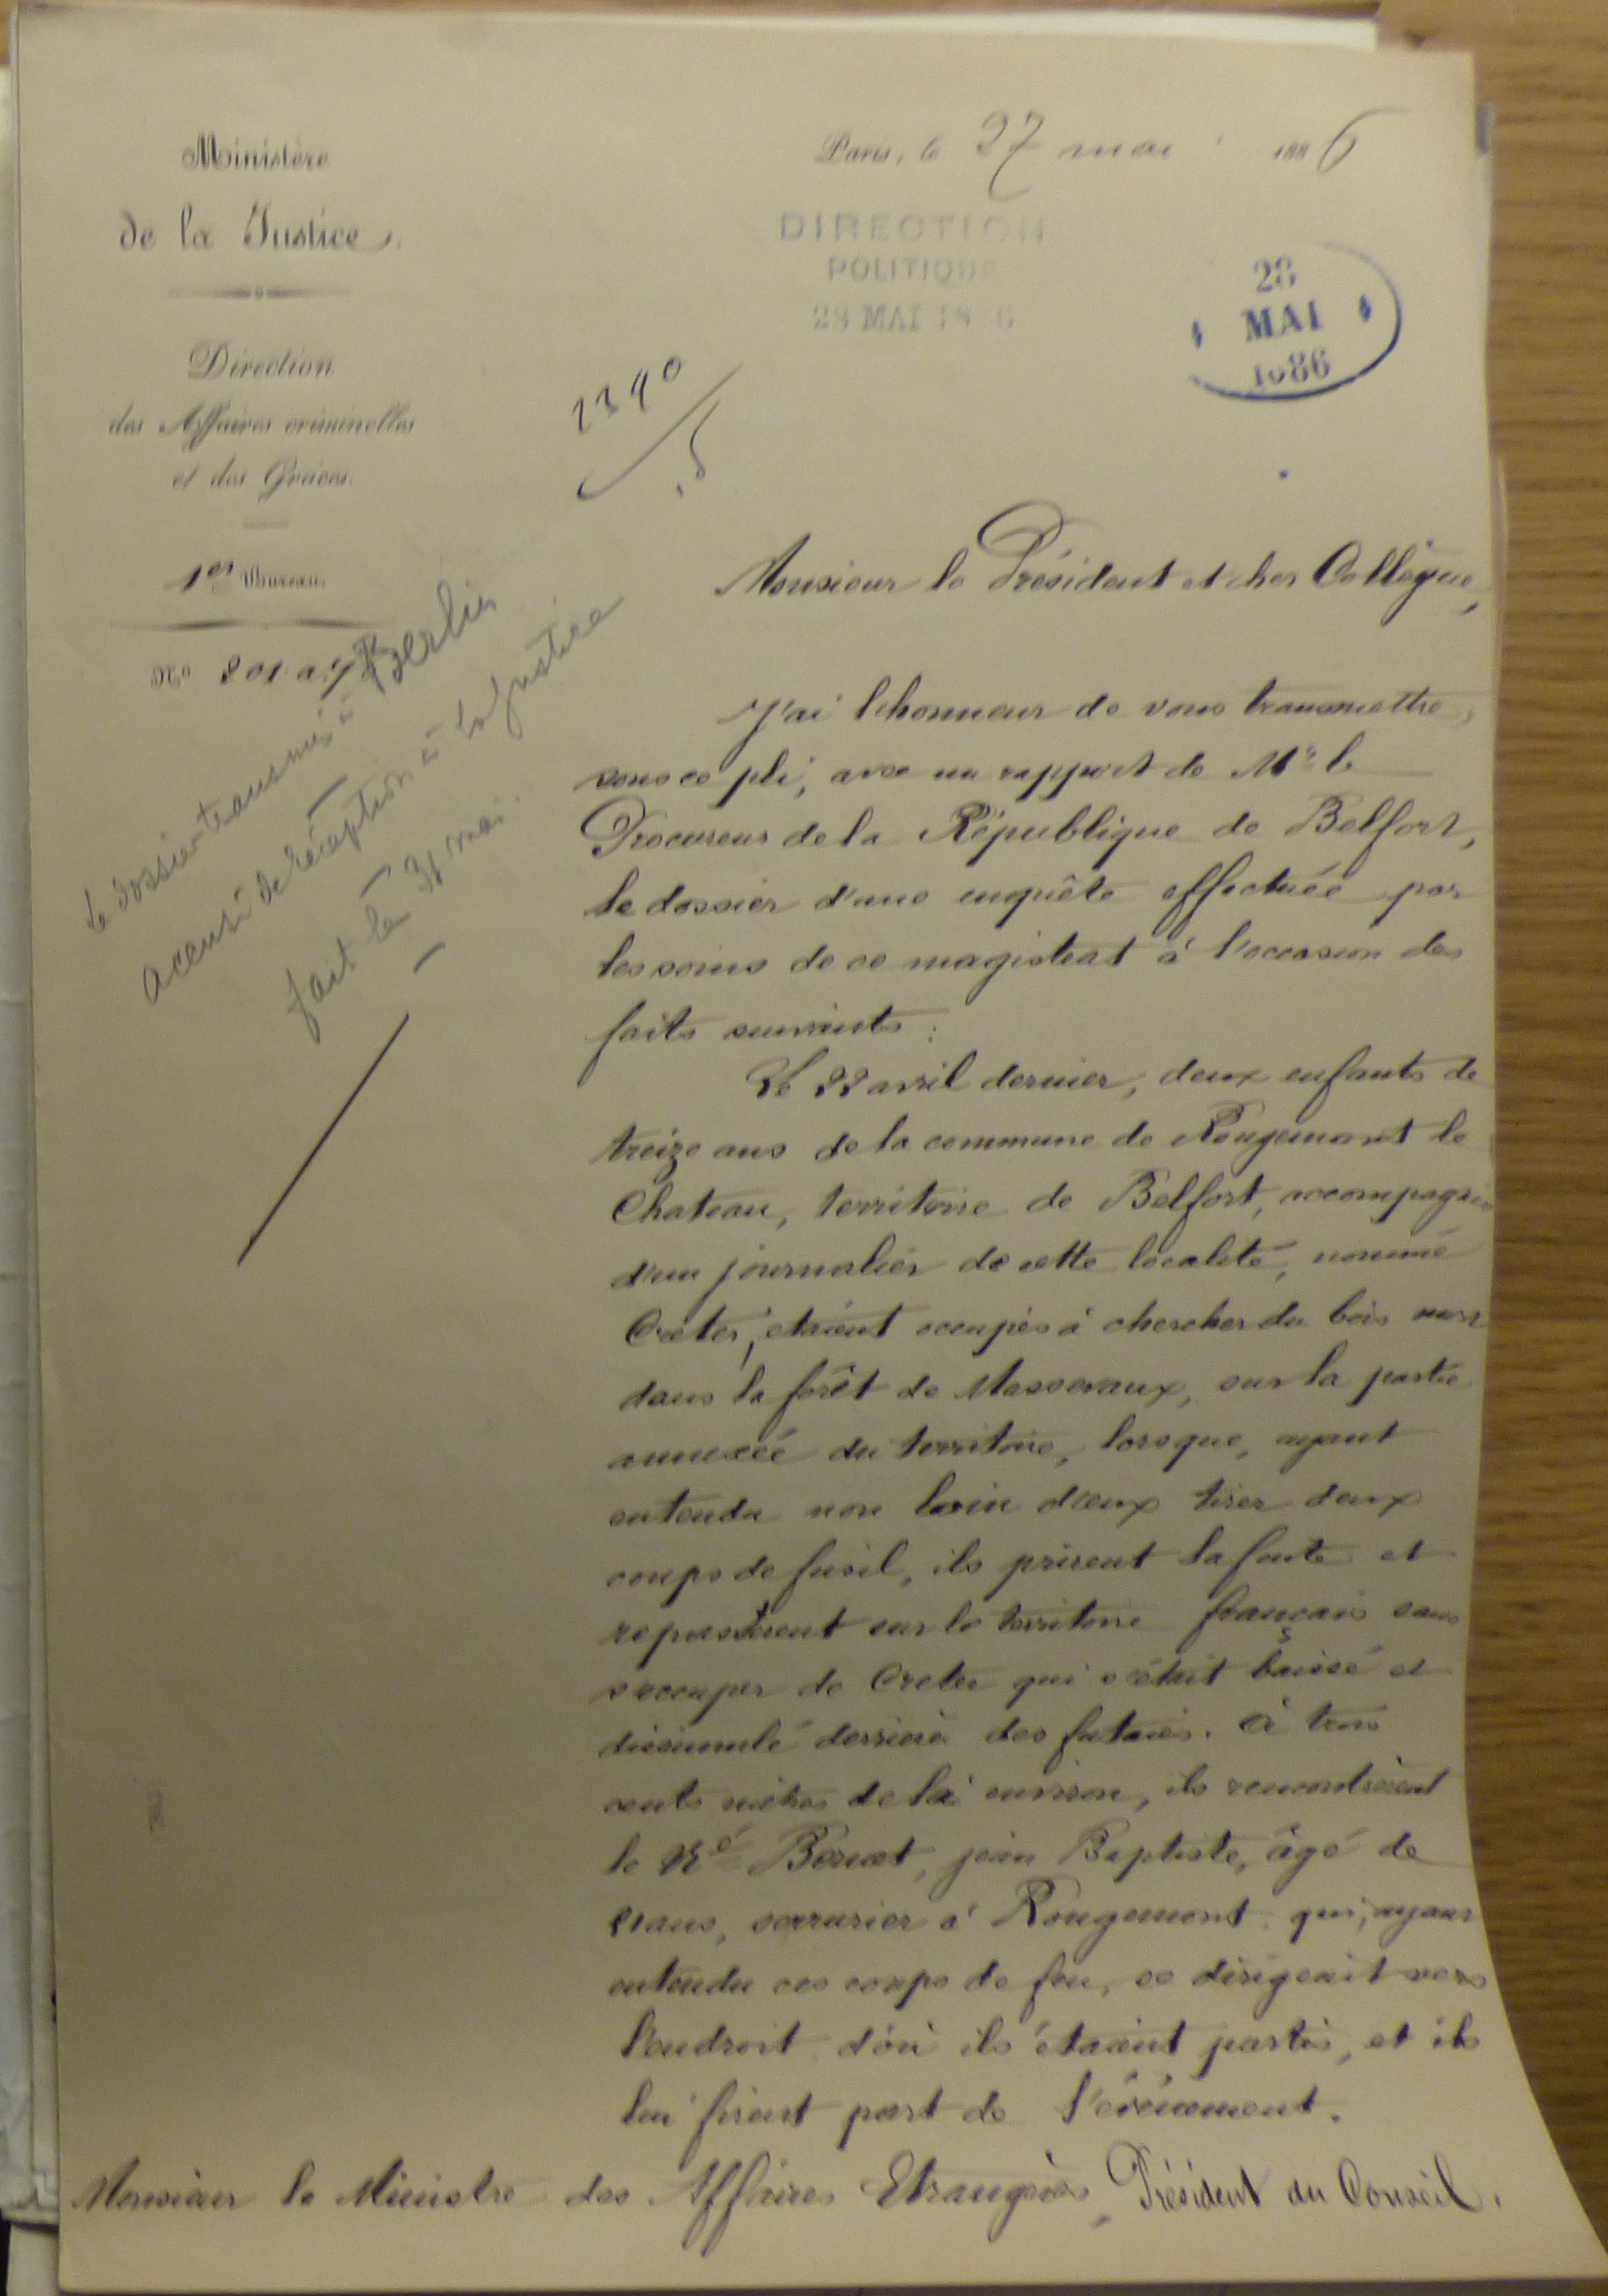 Ministère
de la Justice.
Direction
des Affaires criminelles
et des Grâces.
1er Bureau.
No 801. a.
Paris, le 27 mai 1886
DIRECTION
POLITIQUE
28 MAI 18 6
28
MAI
1886
2340
5
le dossier transmis à Berlin
accusé de réception à la Justice
fait le 31 mai.
Monsieur le Président et cher Collègue,
J'ai l'honneur de vous transmettre,
sous ce pli, avec un rapport de Mr le
Procureur de la République de Belfort,
le dossier d'une enquête effectuée par
les soins de ce magistrat à l'occasion des
faits suivants :
Le 22 avril dernier, deux enfants de
treize ans de la commune de Rougemont le
Chateau, territoire de Belfort, accompagnés
d'un journalier de cette localité, nommé
Créter, étaient occupés à chercher du bois mort
dans la forêt de Massevaux, sur la partie
annexée du territoire, lorsque, ayant
entendu non loin d'eux tirer deux
coups de fusil, ils prirent la fuite et
repassèrent sur le territoire français sans
s'occuper de Créter qui s'était baissé et
dissimulé derrière des futaies. à trois
cents mètres de là environ, ils rencontrèrent
le Né Jean Baptiste, âgé de
21 ans, serrurier à Rougemont qui, ayant
entendu ces coups de feu, se dirigeait vers
l'endroit d'où ils étaient partis, et ils
lui firent part de l'événement.
Monsieur le Ministre des Affaires Etrangères, Président du Conseil.